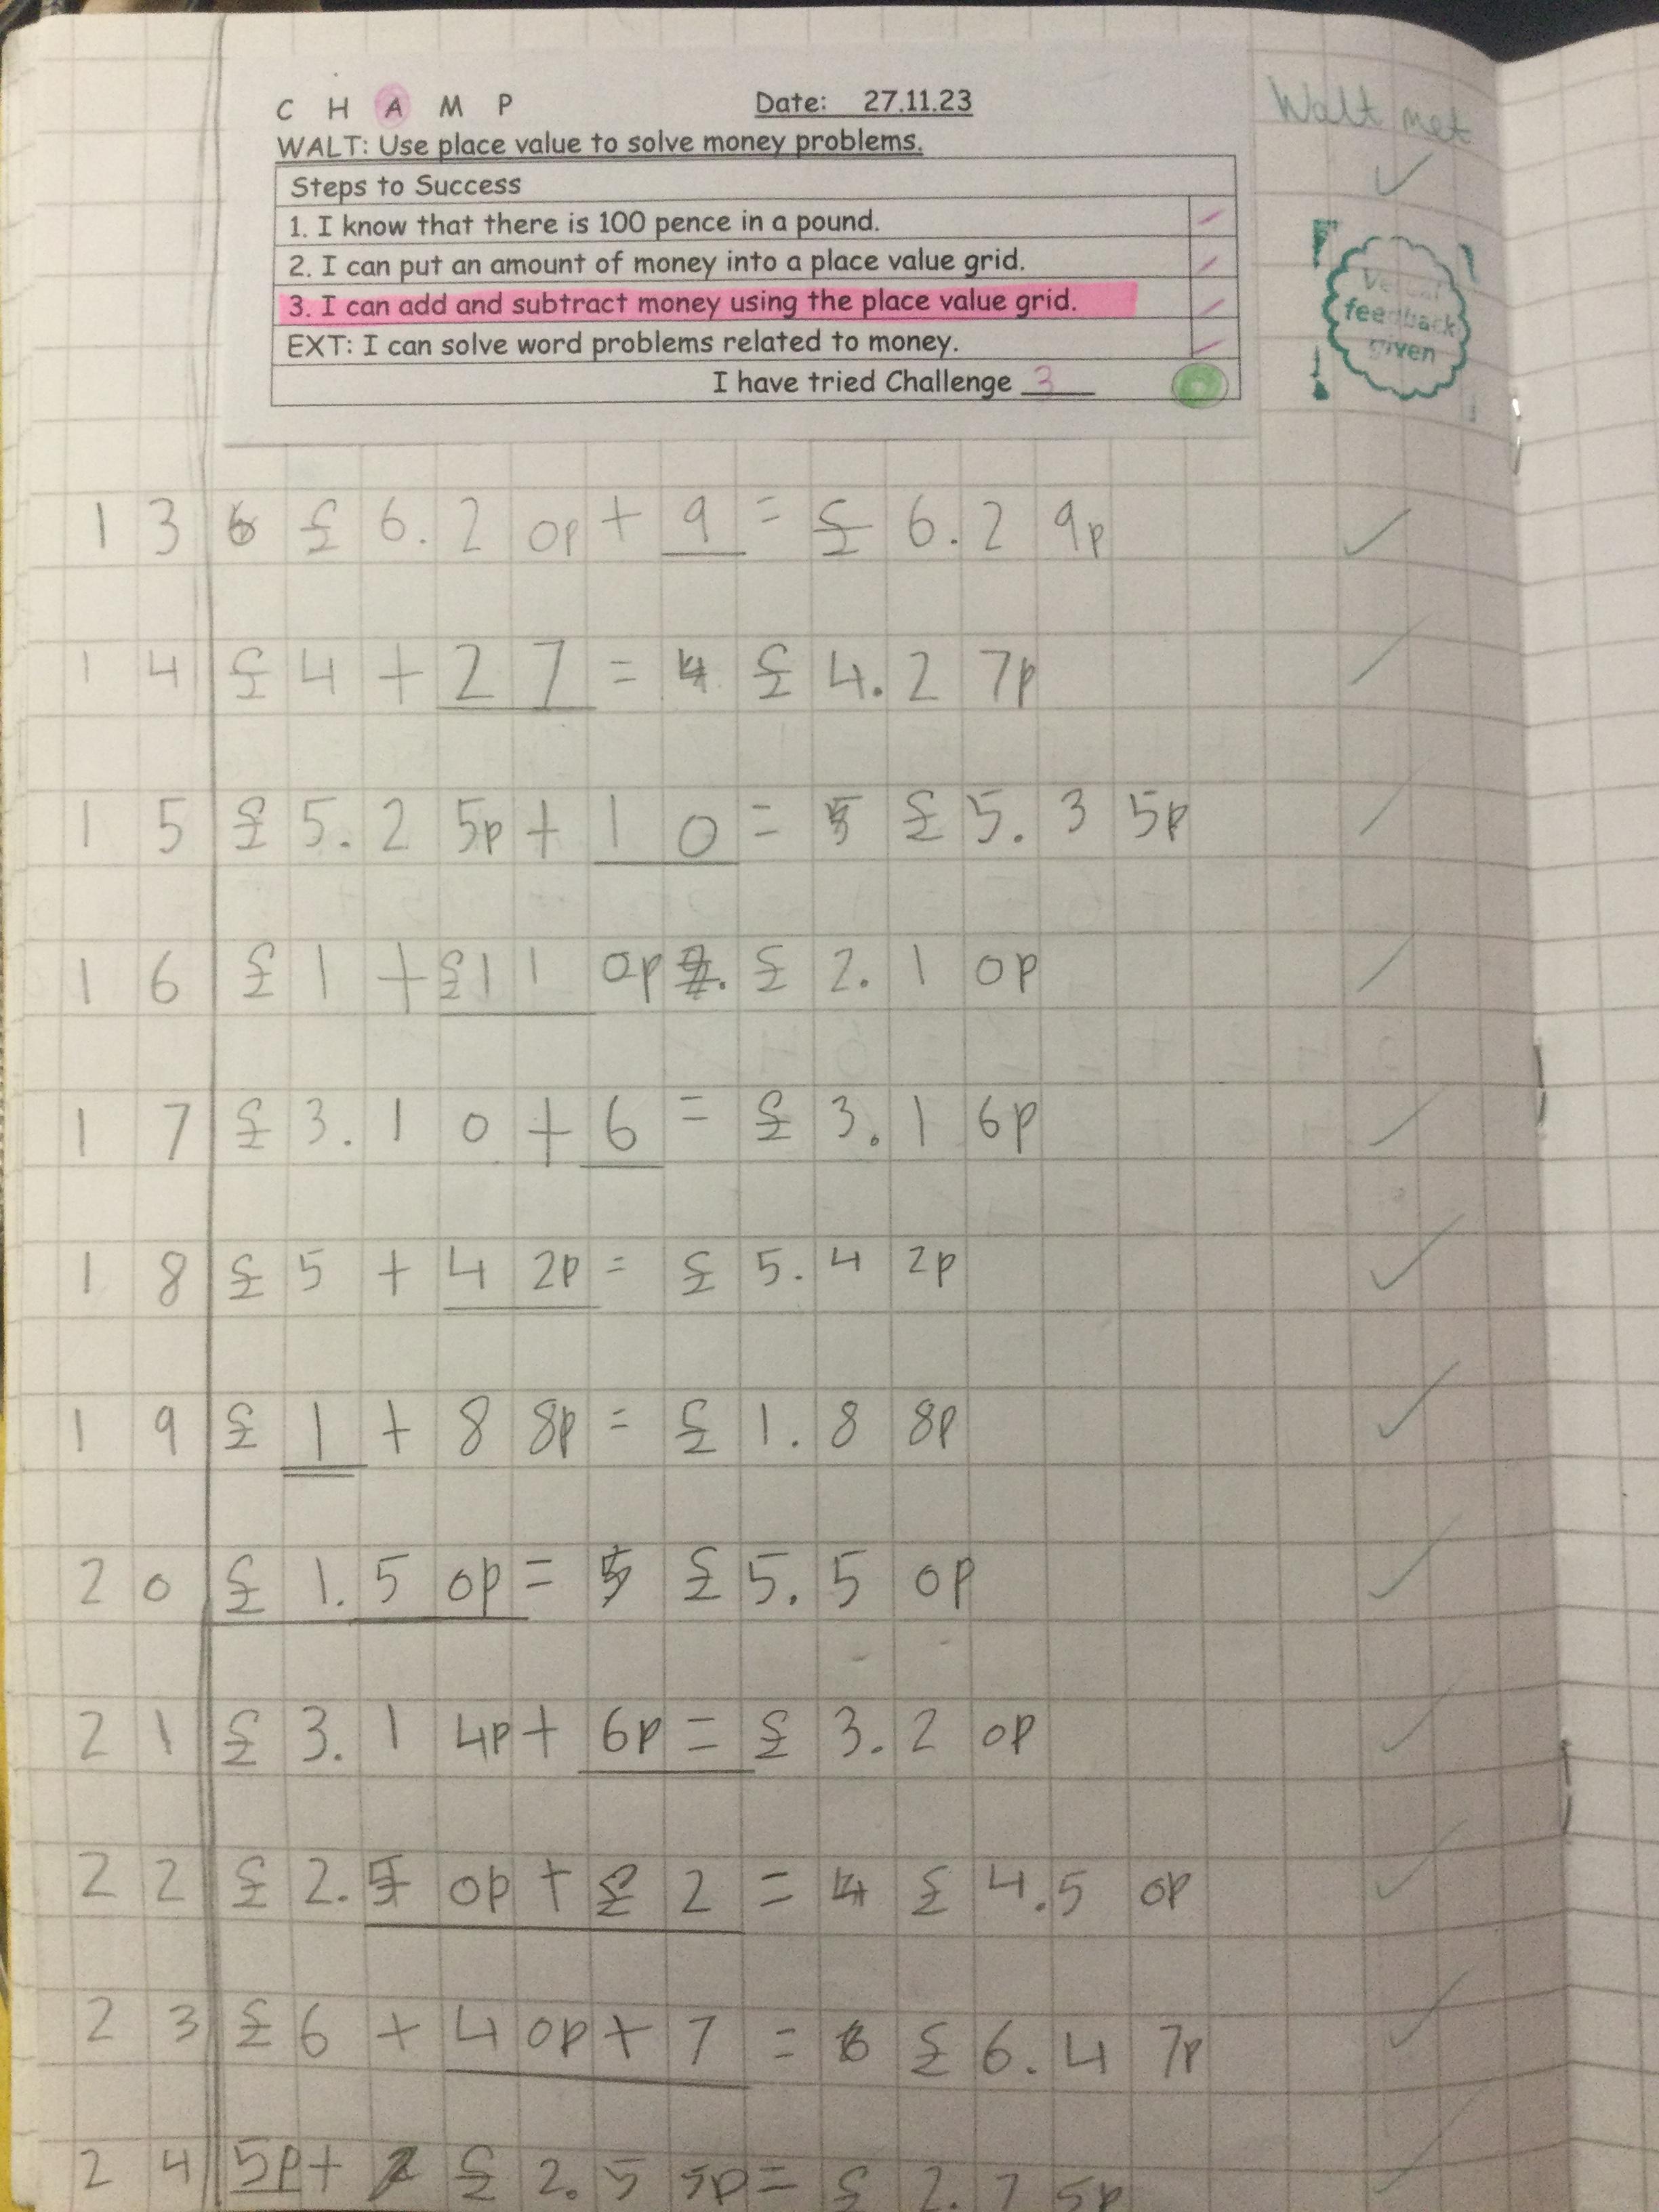 C H A M P Date: 27.11.23
WALT: Use place value to solve money problems.
Steps to Success
1. I know that there is 100 pence in a pound.
2. I can put an amount of money into a place value grid.
3. I can add and subtract money using the place value grid.
EXT: I can solve word problems related to money.
I have tried Challenge 3
Walt met
Verbal
feedback
given
13 £6.20p + 9 = £6.29p
14 £4 + 27 = £4.27p
15 £5.25p + 10 = £5.35p
16 £1 + £110p £2.10p
17 £3.10 + 6 = £3.16p
18 £5 + 42p = £5.42p
19 £1 + 88p = £1.88p
20 £1.50p = £5.50p
21 £3.14p + 6p = £3.20p
22 £2.50p + £2 = £4.50p
23 £6 + 40p + 7 = £6.47p
24 5p + £2.55p = £2.75p